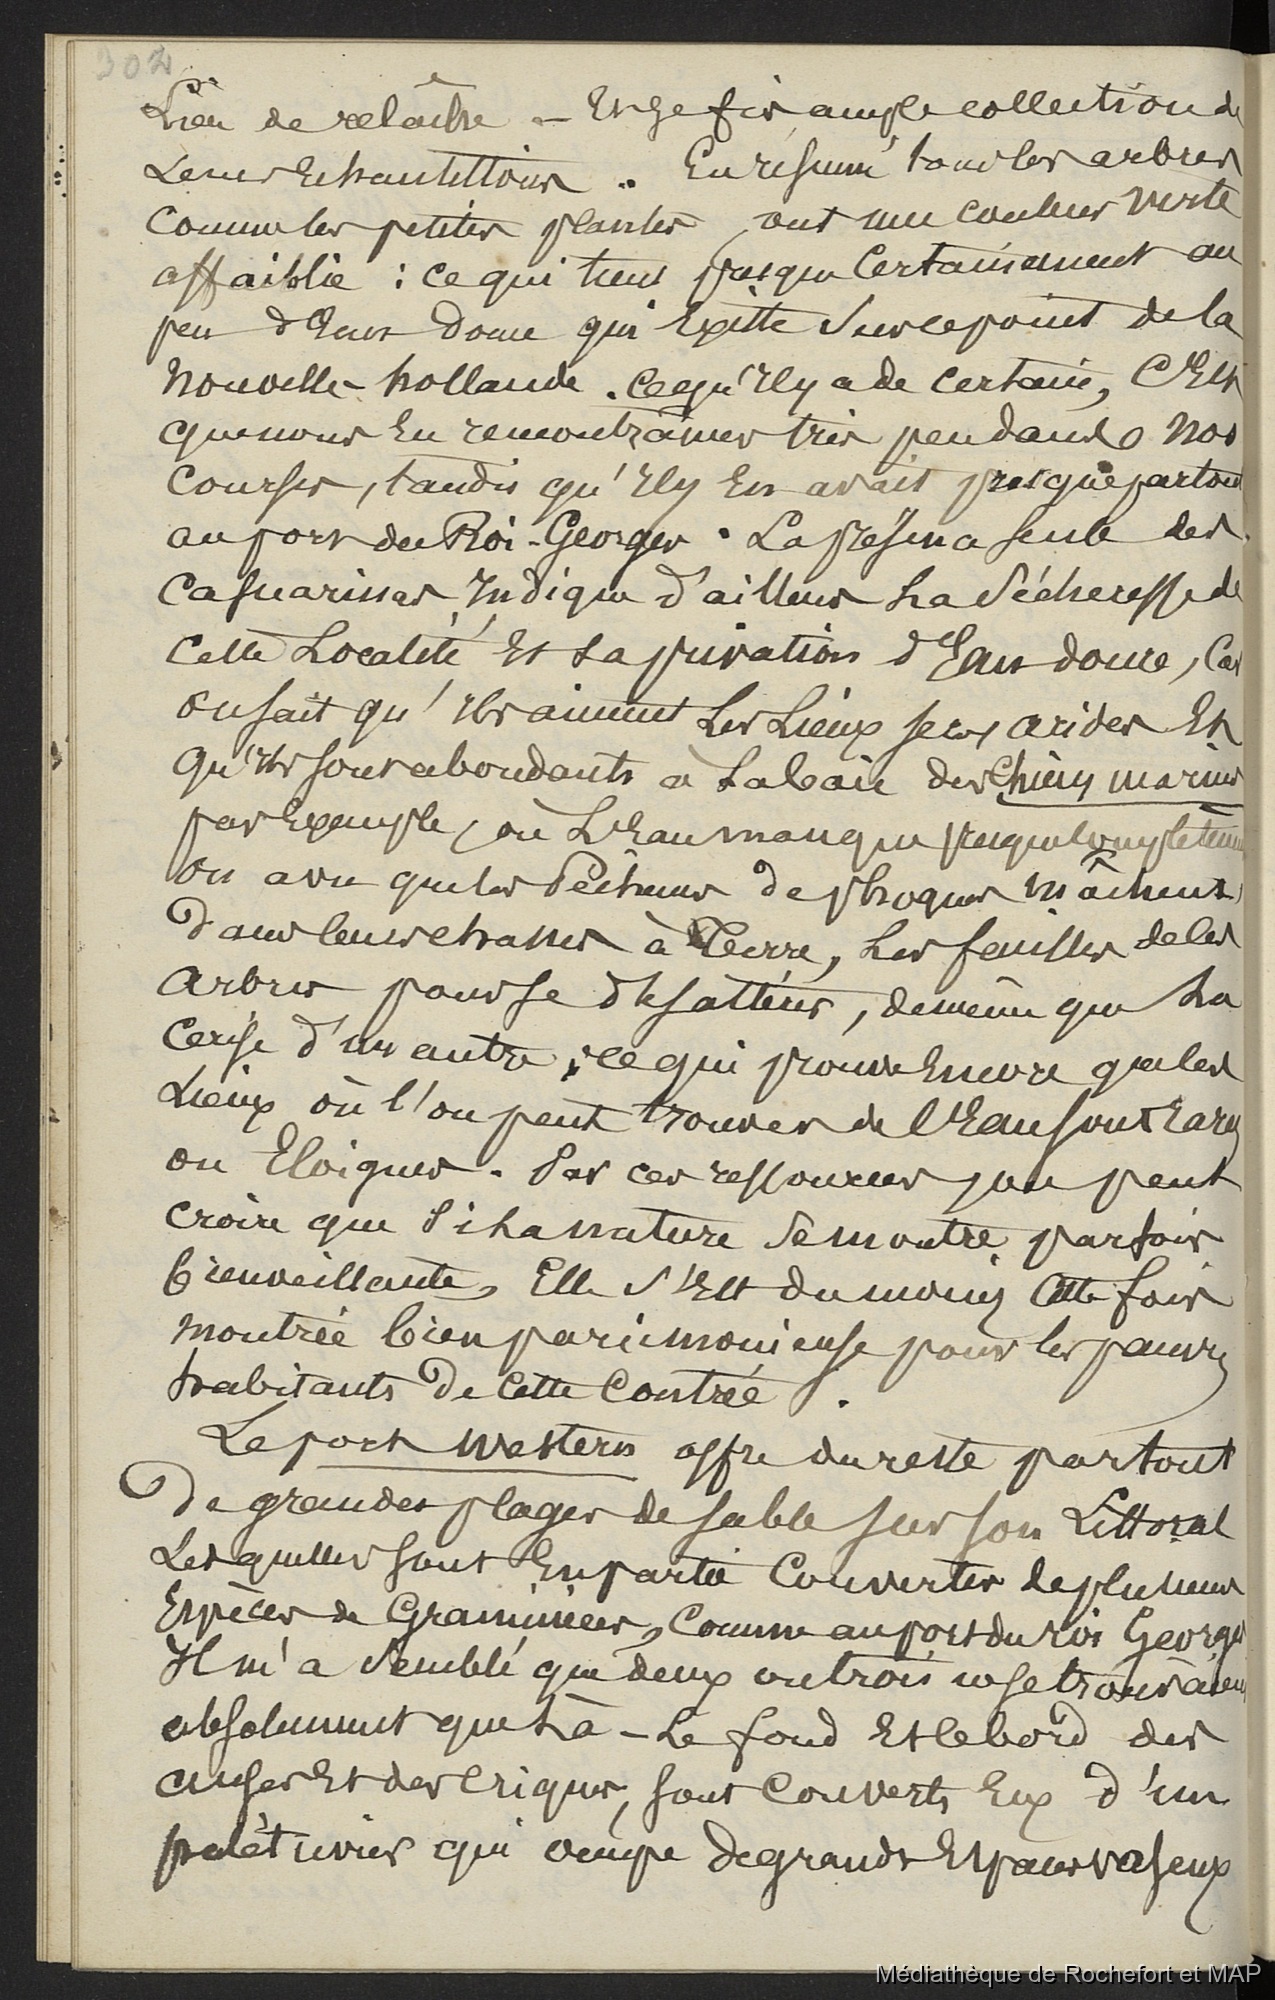 302
Lieu de relâche – Et je fis ample collection de
Leurs Echantillons . En résumé tous les arbres
comme les petites plantes, ont une couleur verte
affaiblie : ce qui tient presque certainement au
peu d'Eau douce qui Existe sur ce point de la
Nouvelle-hollande . ce qu'il y a de certain, C'Est
que nous En rencontrâmes très peu dans nos
Courses, tandis qu'il y En avait presque partout
au port du Roi-Georges . La présence seule des
Casuarinas Indique d'ailleurs La Sécheresse de
cette Localité Et La privation d'Eau douce, Car
on sait qu'ils aiment Les Lieux secs, arides Et
qu'ils sont abondants à La baie des Chiens marins
par Exemple, où L'Eau manque presque complétement
on a vu que les Pêcheurs de phoques mâchent
Dans leurs chasses à Terre, Les feuilles de ces
arbres pour se désaltérer, de même que La
cerise d'un autre ; ce qui prouve Encore que les
Lieux où l'on peut trouver de l'Eau sont rares
ou Eloignés . Par ces ressources, on peut
croire que si La nature se montre parfois
bienveillante, Elle s'Est du moins Cette fois
montrée bien parcimonieuse pour les pauvres
habitants de cette contrée .
Le port Western offre du reste partout
De grandes plages de sable sur son Littoral
Lesquelles sont En partie Couvertes de plusieurs
Espèces de Graminées, Comme au port du roi Georges
Il m'a semblé que deux ou trois ne se trouvaient
absolument que Là – Le fond Et le bord des
anses Et des criques, sont couverts Eux d'un
palétuvier qui occupe de grands Espaces vaseux
Médiathèque de Rochefort et MAP